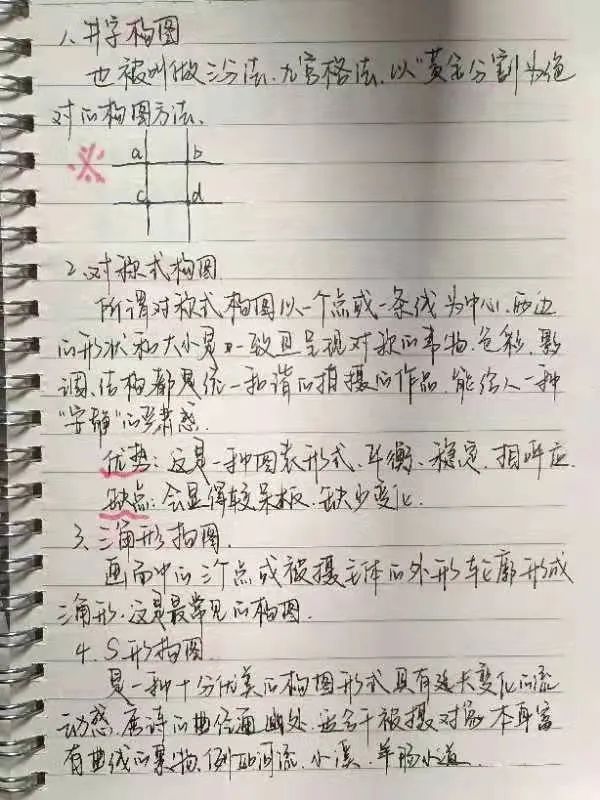 1、井字构图
也被叫做三分法、九宫格法、以"黄金分割为绝
对的构图方法、
※
a b
c d
2、对称式构图
所谓对称式构图以一个点或一条线为中心,两边
的形状和大小是一致且呈现对称的事物、色彩、影
调、结构都是统一和谐的拍摄的作品,能给人一种
"安静"的严肃感.
优势:这是一种图表形式、平衡、稳定、相呼应.
缺点:会显得较呆板、缺少变化.
3、三角形构图.
画面中的三个点或被摄主体的外形轮廓形成
三角形、这是最常见的构图.
4、S形构图
是一种十分优美的构图形式具有延长变化的流
动感,唐诗的曲径通幽处、适合于被摄对象本身富
有曲线的景物、例如河流、小溪、羊肠小道